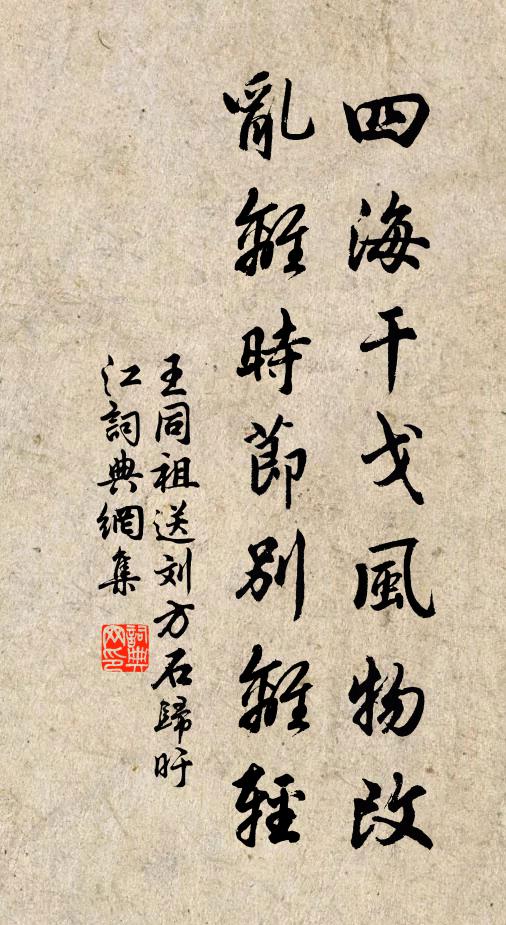 四海干戈風物改
亂離時節別離輕
王同祖送刘方石歸旴
江詞典網集
詞典
网印